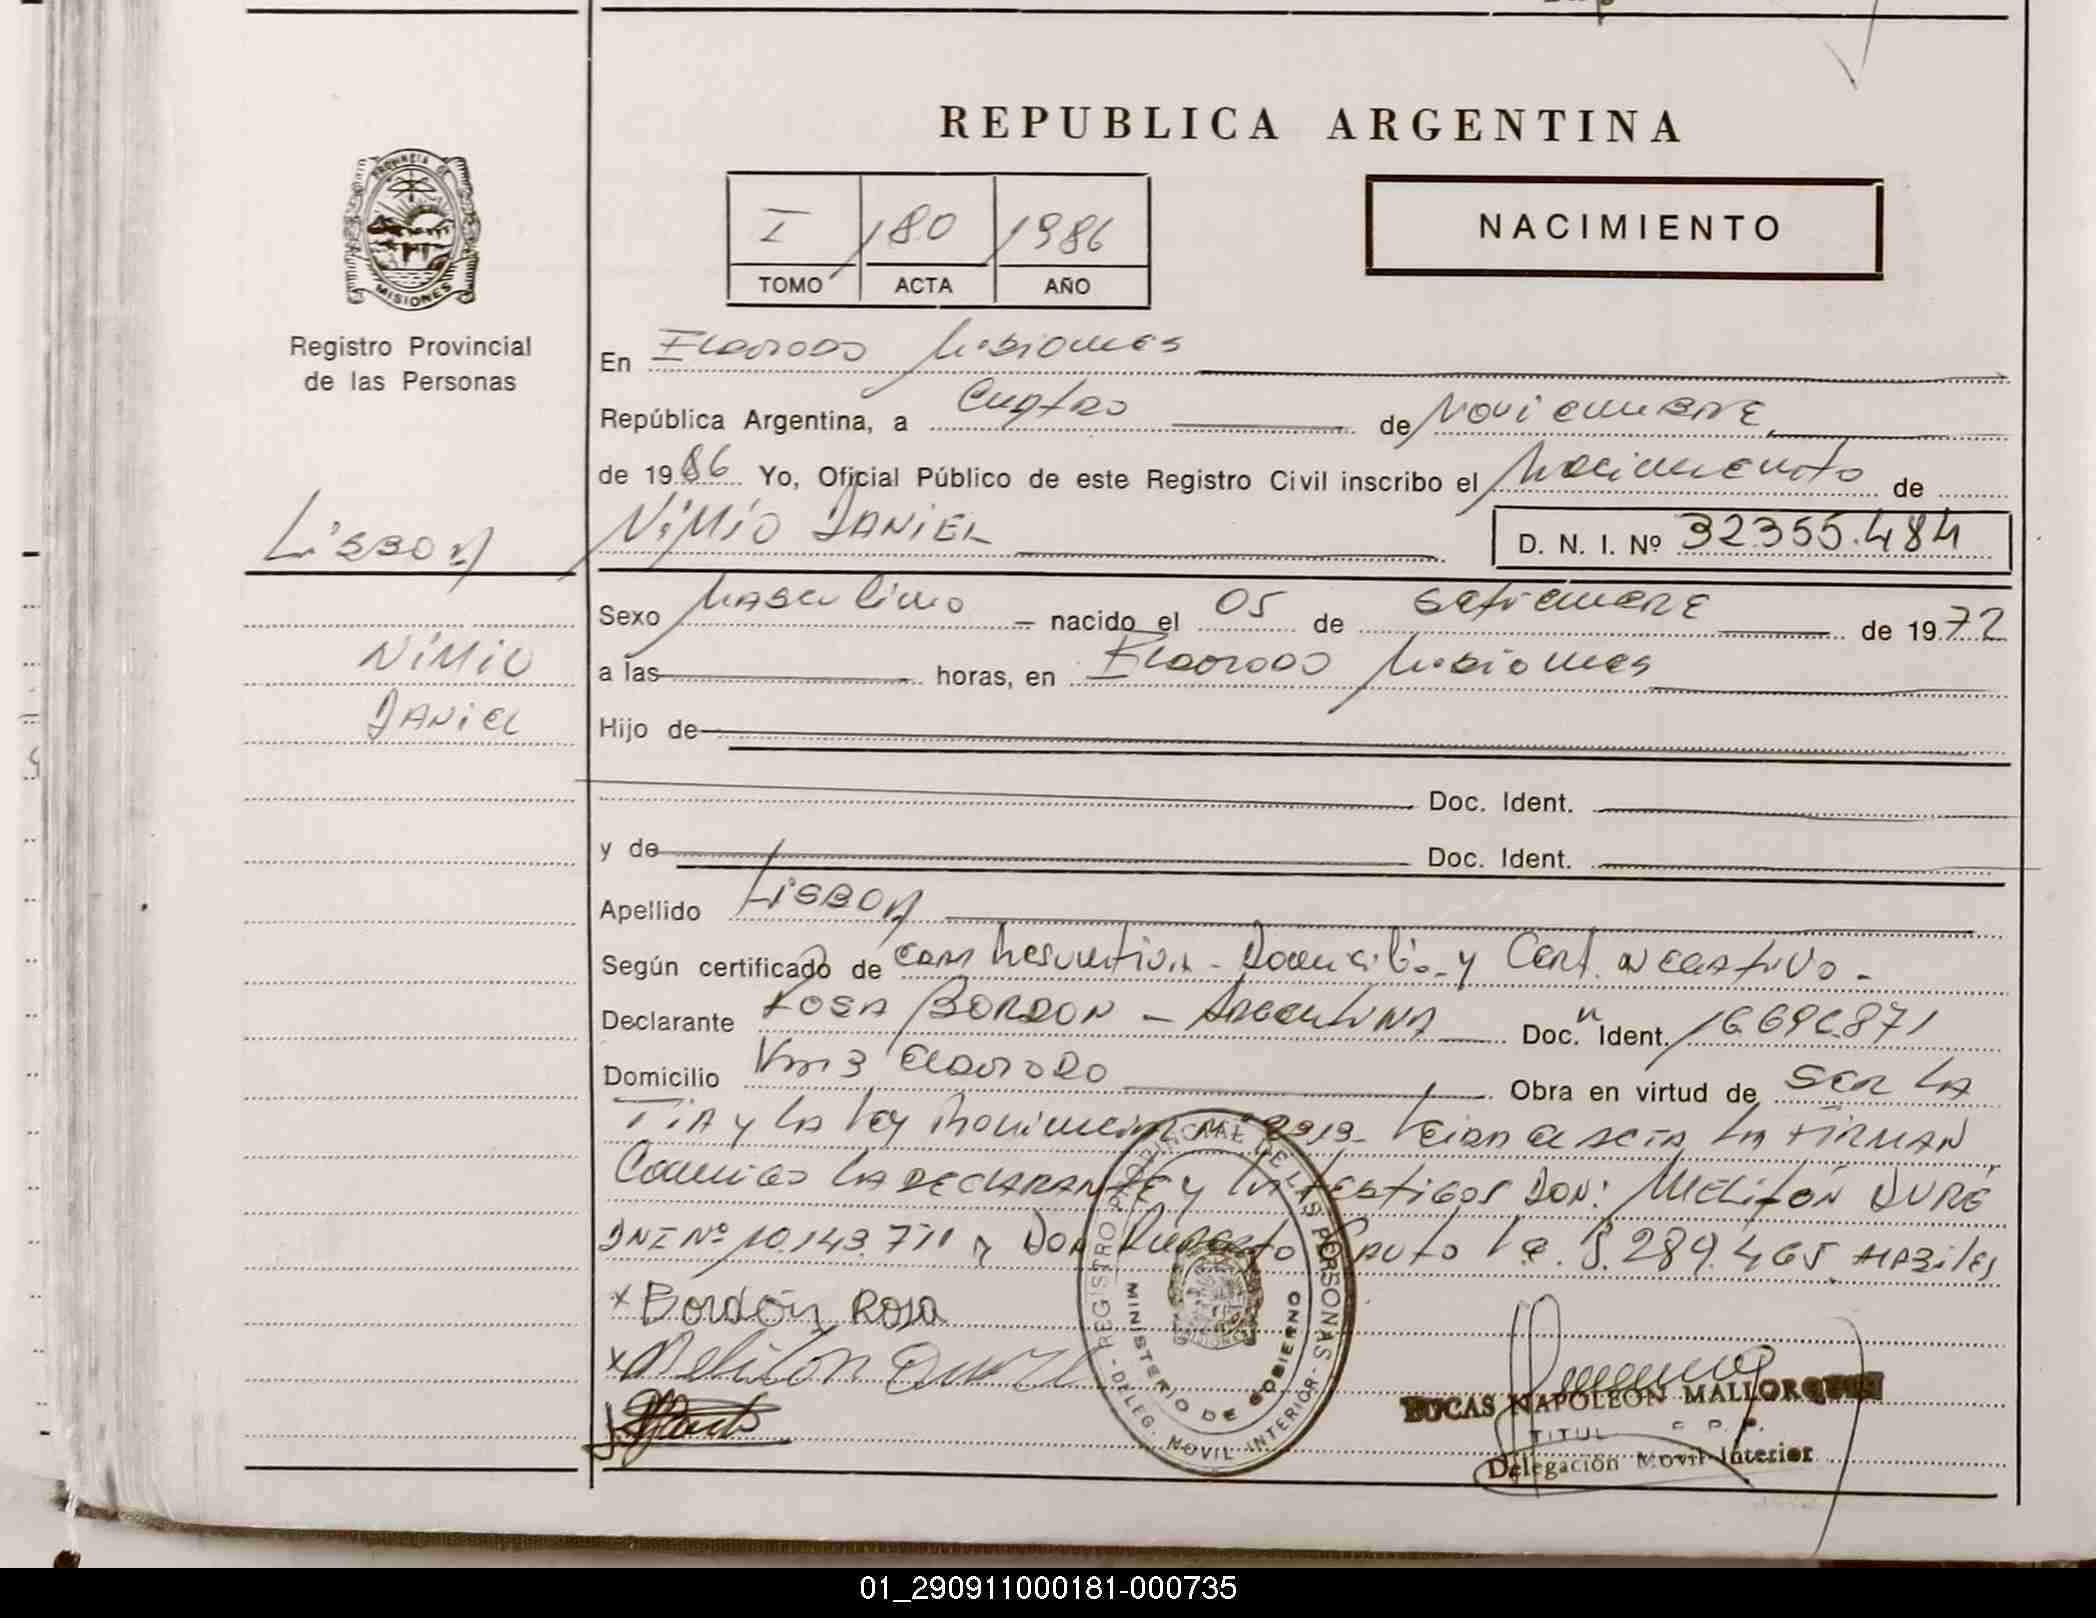 REPUBLICA ARGENTINA
PROVINCIA DE MISIONES
Registro Provincial
de las Personas
I 180 1986
TOMO ACTA AÑO
NACIMIENTO
En Eldorado Misiones
República Argentina, a Cuatro de Noviembre
de 1986 Yo, Oficial Público de este Registro Civil inscribo el Nacimiento de
Lisboa
NiMiO DANiEL D. N. I. Nº 32355.484
Sexo Masculino nacido el 05 de Setiembre de 1972
NiMiO
a las horas, en Eldorado Misiones
DANiEL
Hijo de
Doc. Ident.
y de Doc. Ident.
Apellido Lisboa
Según certificado de Domicilio y Cert. Negativo -
Declarante Rosa Bordon - Argentina Doc. Ident.
Domicilio Km 3 Eldorado Obra en virtud de ser la
Tia y la ley Nº Leida el acta la firman
Conmigo la declarante y los testigos Don: Meliton Duré
DNI Nº 10.143.771 y Don 289.465 Habiles
x Bordón Rosa
x Meliton Dure
REGISTRO PROVINCIAL DE LAS PERSONAS
MINISTERIO DE GOBIERNO
- DELEG. MOVIL INTERIOR -
LUCAS NAPOLEON MALLORQUIN
TITUL
Delegación Movil Interior
01_290911000181-000735